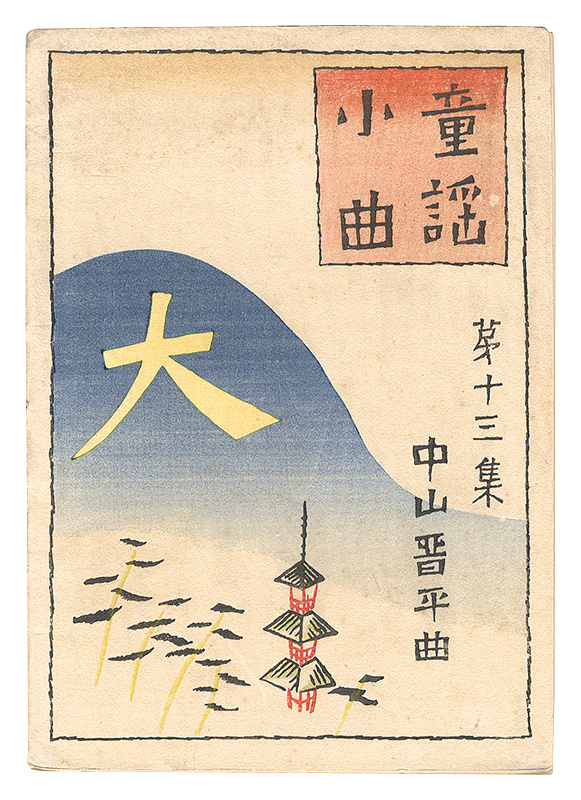 童謡
小曲
第十三集
中山晋平曲
大